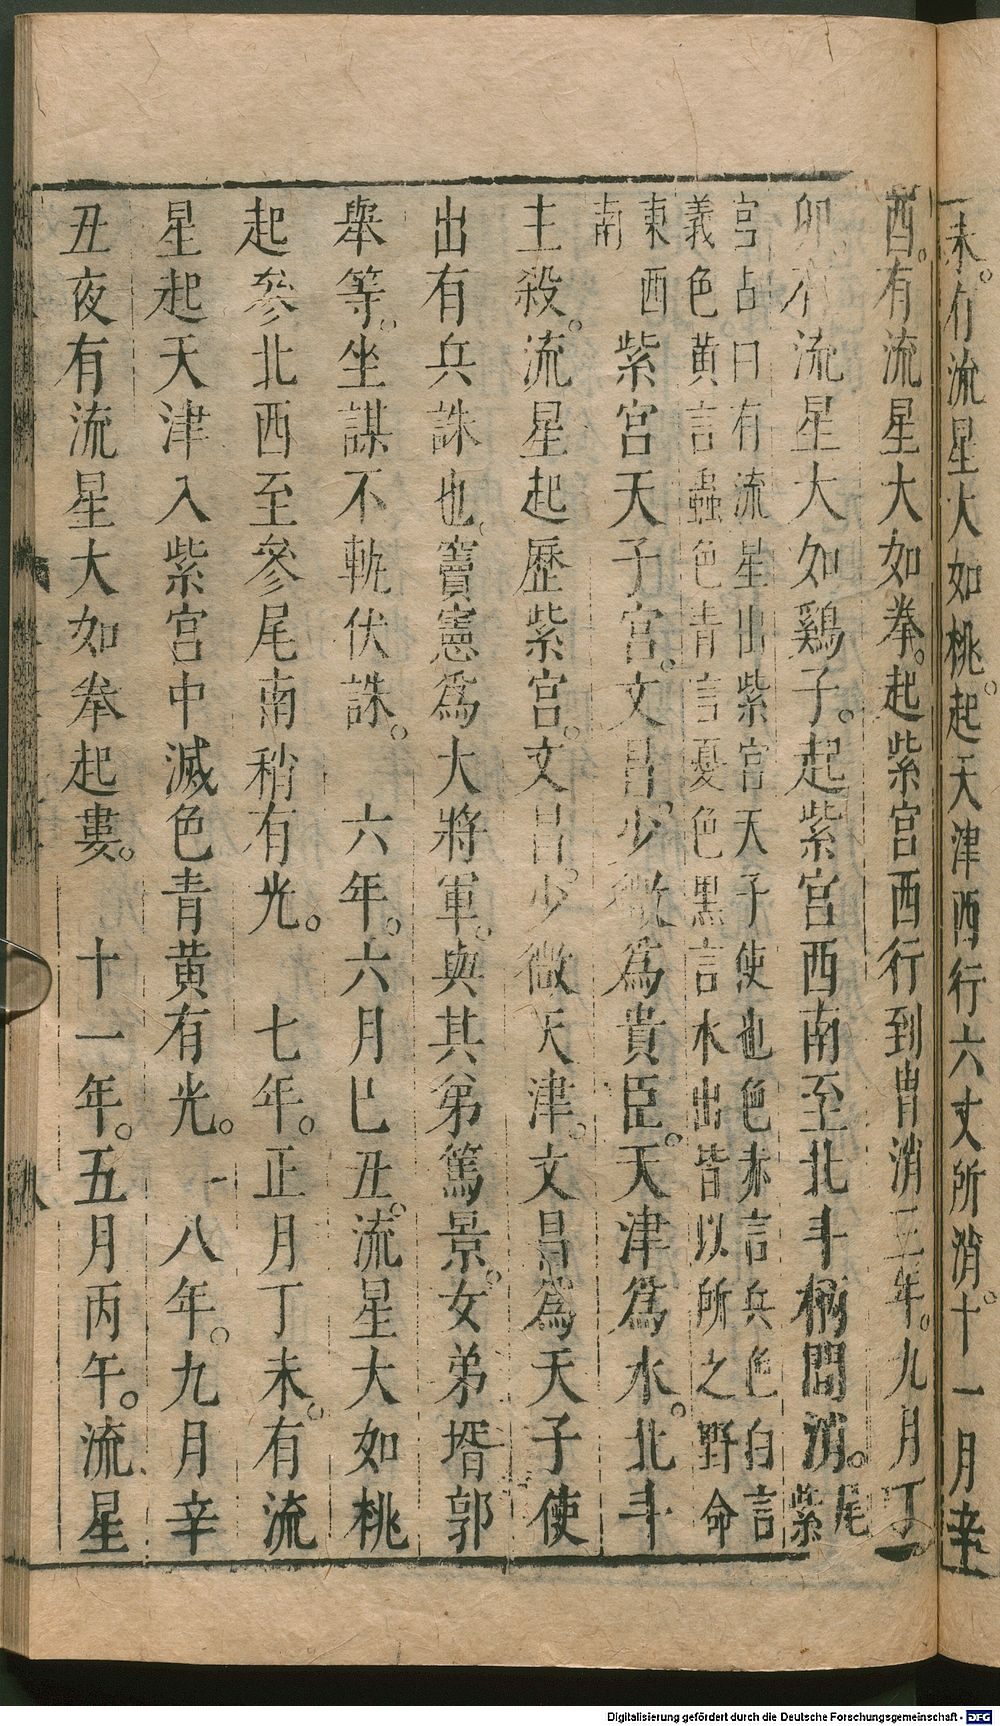 未。有流星大如桃。起天津西行六丈所消。十一月辛
酉。有流星大如拳。起紫宮西行到胃消三年。九月丁
卯。有流星大如鷄子。起紫宮西南至北斗柄間消。紫尾
宮占曰有流星出紫宮天子使也色赤言兵色白言
義色。黄言蟲色青言憂色黒言水出皆以所之野命
東西
南
紫宮天子宮。文昌。少微爲貴臣。天津爲水。北斗
主殺。流星起歷紫宮。文昌。少微天津。文昌爲天子使
出有兵誅也。竇憲爲大將軍。與其弟篤景。女弟壻郭
舉等。坐謀不軌伏誅。 六年。六月巳丑。流星大如桃
起參北西至參尾南稍有光。 七年。正月丁未。有流
星起天津入紫宮中滅色青黄有光。一八年。九月辛
丑夜有流星大如拳起婁。 十一年。五月丙午。流星
八
Digitalisierung gefördert durch die Deutsche Forschungsgemeinschaft - DFG